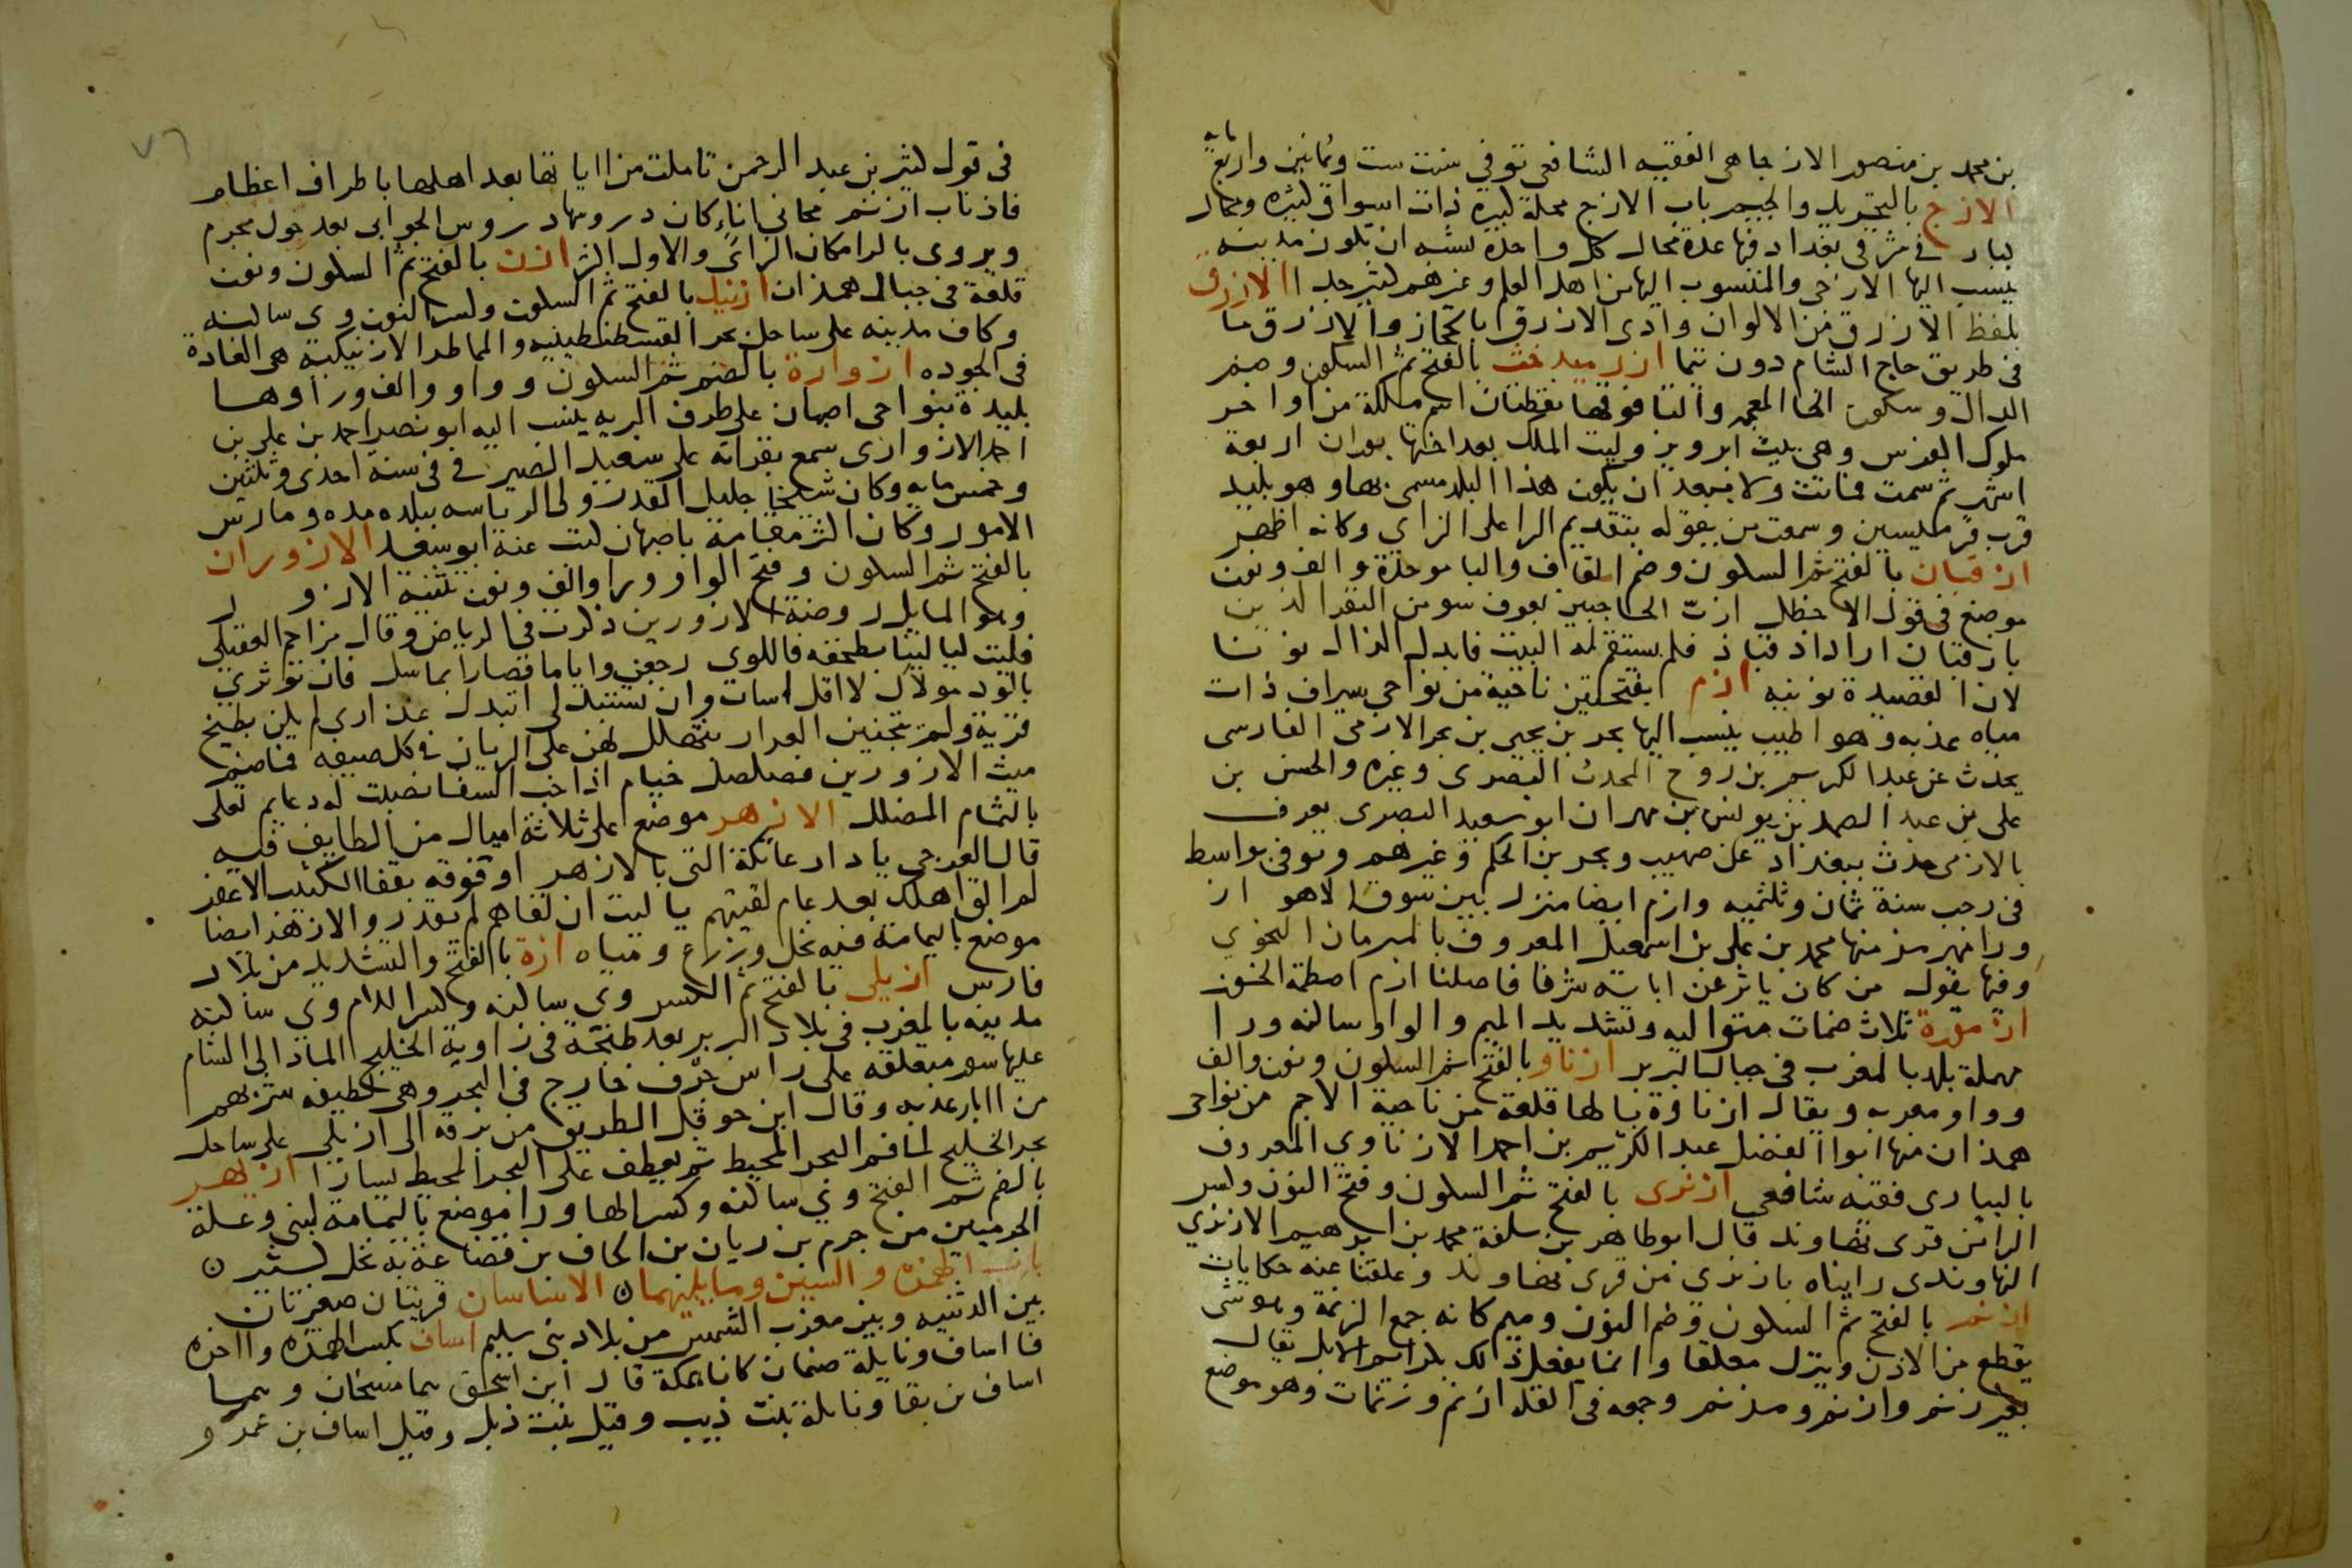 بن محمد بن منصور الازجاهى الفقيه الشافعى توفي سنت ست وثمانين واربعمايه
الازج بالتحريك والجيم باب الازج محلة كبيرة ذات اسواق كثيره ومحال
كبار فى شرقى بغداد فيها عدة محال كل واحدة تشبه ان تكون مدينه
ينسب اليها الازجى والمنسوب اليها من اهل العلم وغيرهم كثير جدا الازرق
بلفظ الازرق من الالوان وادى الازرق بالحجاز والازرق ما
فى طريق حاج الشام دون تيما ازرميدخت بالفتح ثم السكون وضم
الدال وسكون الخا المعجمه والتا فوقها نقطتان اسم ملكة من اواخر
ملوك الفرس وهى بنت ابرويز وليت الملك بعد اختها بوران اربعة
اشهر ثم سمت فماتت ولا يبعد ان يكون هذا البلد مسمى بها وهو بليد
قرب قرمليسين وسمعت من يقوله بتقديم الرا على الزاى وكانه اظهر
ازقبان بالفتح ثم السكون وضم القاف والبا موحدة والف ونون
موضع فى قول الاخطل ازبّ الحاجبين بعوف سو من النفر الذين
بازقبان اراد ازقباذ فلم يستقم له البيت فابدل الذال نونا
لان القصيدة نونيه ازم بفتحتين ناحية من نواحى سيراف ذات
مياه عذبه وهوا طيب ينسب اليها بحر بن يحيى بن بحر الازمى الفارسى
يحدث عن عبد الكريم بن روح المحدث البصرى وغيره والحسن بن
على بن عبد الصمد بن يونس بن مهران ابو سعيد البصرى يعرف
بالازمى حدث ببغداد عن صهيب وبحر بن الحكم وغيرهم وتوفى بواسط
فى رجب سنة ثمان وثلثميه وازم ايضا منزل بين سوق الاهواز
ورامهرمز منها محمد بن على بن اسمعيل المعروف بالمبرمان النحوى
وفيها يقول من كان ياثر عن ابايه شرفا فاصلنا ازم اصطمة الخوز
ازمورة ثلاث ضمات متواليه وتشديد الميم والواو ساكنه ورا
مهملة بلد بالمغرب فى جبال البربر ازناو بالفتح ثم السكون ونون والف
وواو معربه ويقال ازناوة بالها قلعة من ناحية الاجم من نواحى
همذان منها ابوا الفضل عبد الكريم بن احمد الازناوي المعروف
بالبيارى فقيه شافعى ازنرى بالفتح ثم السكون وفتح النون وكسر
الرا من قرى نهاوند قال ابو طاهر بن سلفة محمد بن ابرهيم الازنرى
النهاوندى رايناه بازنرى من قرى نهاوند وعلقنا عنه حكايات
ازنم بالفتح ثم السكون وضم النون وميم كانه جمع الزنمة وهو شى
يقطع من الاذن ويترك معلقا وانما يفعل ذلك بكرايم الابل يقال
بعير زنم وازنم ومزنم وجمعه فى القله ازنم وزنمات وهو موضع
٧٦
فى قول كثير بن عبد الرحمن تاملت من اياتها بعد اهلها باطراف اعظام
فاذناب ازنم محانى اناء كان دروسها دروس الجوابى بعد حول مجرم
ويروى بالرا مكان الزاى والاول اكثر ازن بالفتح ثم السكون ونون
قلعة فى جبال همذان ازنيك بالفتح ثم السكون وكسر النون وى ساكنه
وكاف مدينه على ساحل بحر القسطنطينيه والمماطر الازنيكية هى الغادة
فى الجوده ازوارة بالضم ثم السكون وواو والف ورا وها
بليدة بنواحى اصبهان على طرف البريه ينسب اليه ابو نصر احمد بن على بن
احمد الازوارى سمع بقراته على سعيد الصير فى فى سنة احدى وثلثين
وخمس مايه وكان شيخا جليل القدر ولى الرياسه ببلده مده ومارس
الامور وكان اكثر مقامه باصبهان كتب عنه ابو سعد الازوران
بالفتح ثم السكون وفتح الواو ورا والف ونون تثنية الازور
وهو المايل روضة الازورين ذكرت فى الرياض وقال مزاحم العقيلى
فليت ليالينا بطخفه فاللوى رجعن واياما قصارا بماسل فان توثرى
بالود مولاك لا اقل اسات وان تستبدلى اتبدل عذارى لم ياكلن بطيخ
قرية ولم يتجنين العرار بثهلل لهن على الريان فى كل صيفه فماضم
ميث الازورين فصلصل خيام اذا خب السفا نصبت له دعايم تعلى
بالثمام المضلل الازهر موضع على ثلاثة اميال من الطايف فيه
قال العرجى يا دار عاتكة التى بالازهر او فوقه بقفا الكثيب الاعفر
لم الق اهلك بعد عام لقيتهم يا ليت ان لقاهم لم يقدر والازهر ايضا
موضع باليمامة فيه نخل وزرع ومياه ازة بالفتح والتشديد من بلاد
فارس ازيلى بالفتح ثم الكسر وى ساكنه وكسر اللام وى ساكنه
مدينه بالمغرب فى بلاد البربر بعد طنجة فى زاوية الخليج الماد الى الشام
عليها سور متعلقه على راس جرف خارج فى البحر وهى لطيفه شربهم
من ابار عذبه وقال ابن حوقل الطريق من برقه الى ازيلى على ساحل
بحر الخليج الى فم البحر المحيط ثم يعطف على البحر المحيط يسارا ازيهر
بالضم ثم الفتح وى ساكنه وكسر الها ورا موضع باليمامة لبنى وعلة
الجرميين من جرم بن ريان بن الحاف بن قضاعة به نخل كثير ن
باب الهمزه والسين وما يليهما ن الاساسان قريتان صغيرتان
بين الدثنيه وبين مغرب الشمس من بلاد بنى سليم اساف بكسر الهمزه واخره
فا اساف ونايلة صنمان كانا بمكة قال ابن اسحق هما مسخان وهما
اساف بن بقا ونايلة بنت ذيب وقيل بنت ذيل وقيل اساف بن عمرو